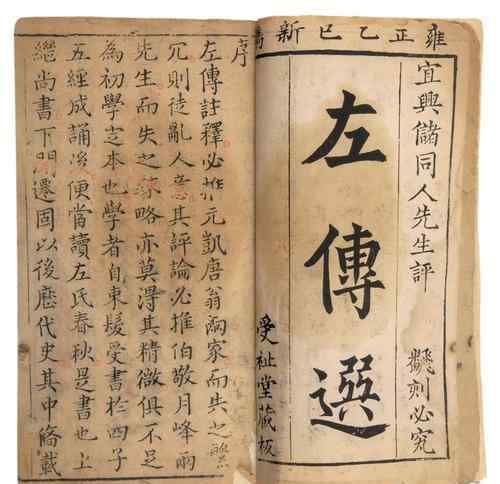 雍正乙巳新
宜興儲同人先生評
飜刻必究
左傳選
受祉堂藏板
序
左傳註釋必推元凱唐翁兩家而失之繁
冗則徒亂人意其評論必推伯敬月峰兩
先生而失之疎略亦莫得其精微俱不足
為初學定本也學者自束髮受書於四子
五經成誦後便當讀左氏春秋是書也上
繼尚書下開遷固以後歷代史其中條載